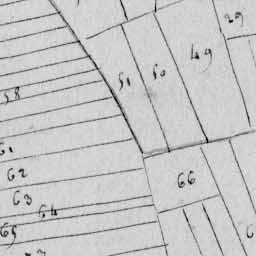 29
49
50
51
58
61
62
66
63
64
65